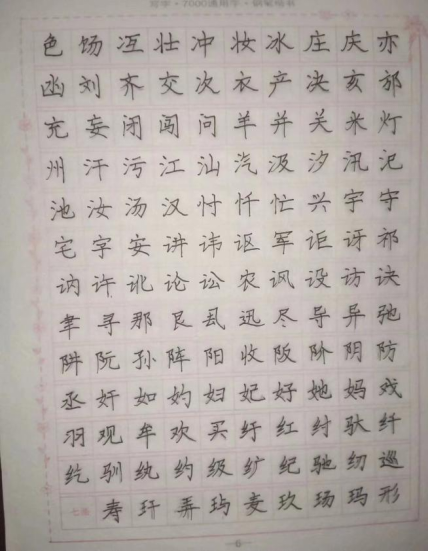 写字·7000通用字·钢笔楷书
色饧冱壮冲妆冰庄庆亦
刘齐交次衣产决亥邡
充妄闭闯问羊并关米灯
州汗污江汕汽汲汐汛汜
池汝汤汉忖忏忙兴宇守
宅字安讲讳讴军讵讶祁
讷许讹论讼农讽设访诀
聿寻那艮厾迅尽导异弛
阱阮孙阵阳收阪阶阴防
丞奸如妁妇妃好她妈戏
羽观牟欢买纡红纣驮纤
纥驯纨约级纩纪驰纫巡
七画 寿玕弄玙麦玖玚玛形
6